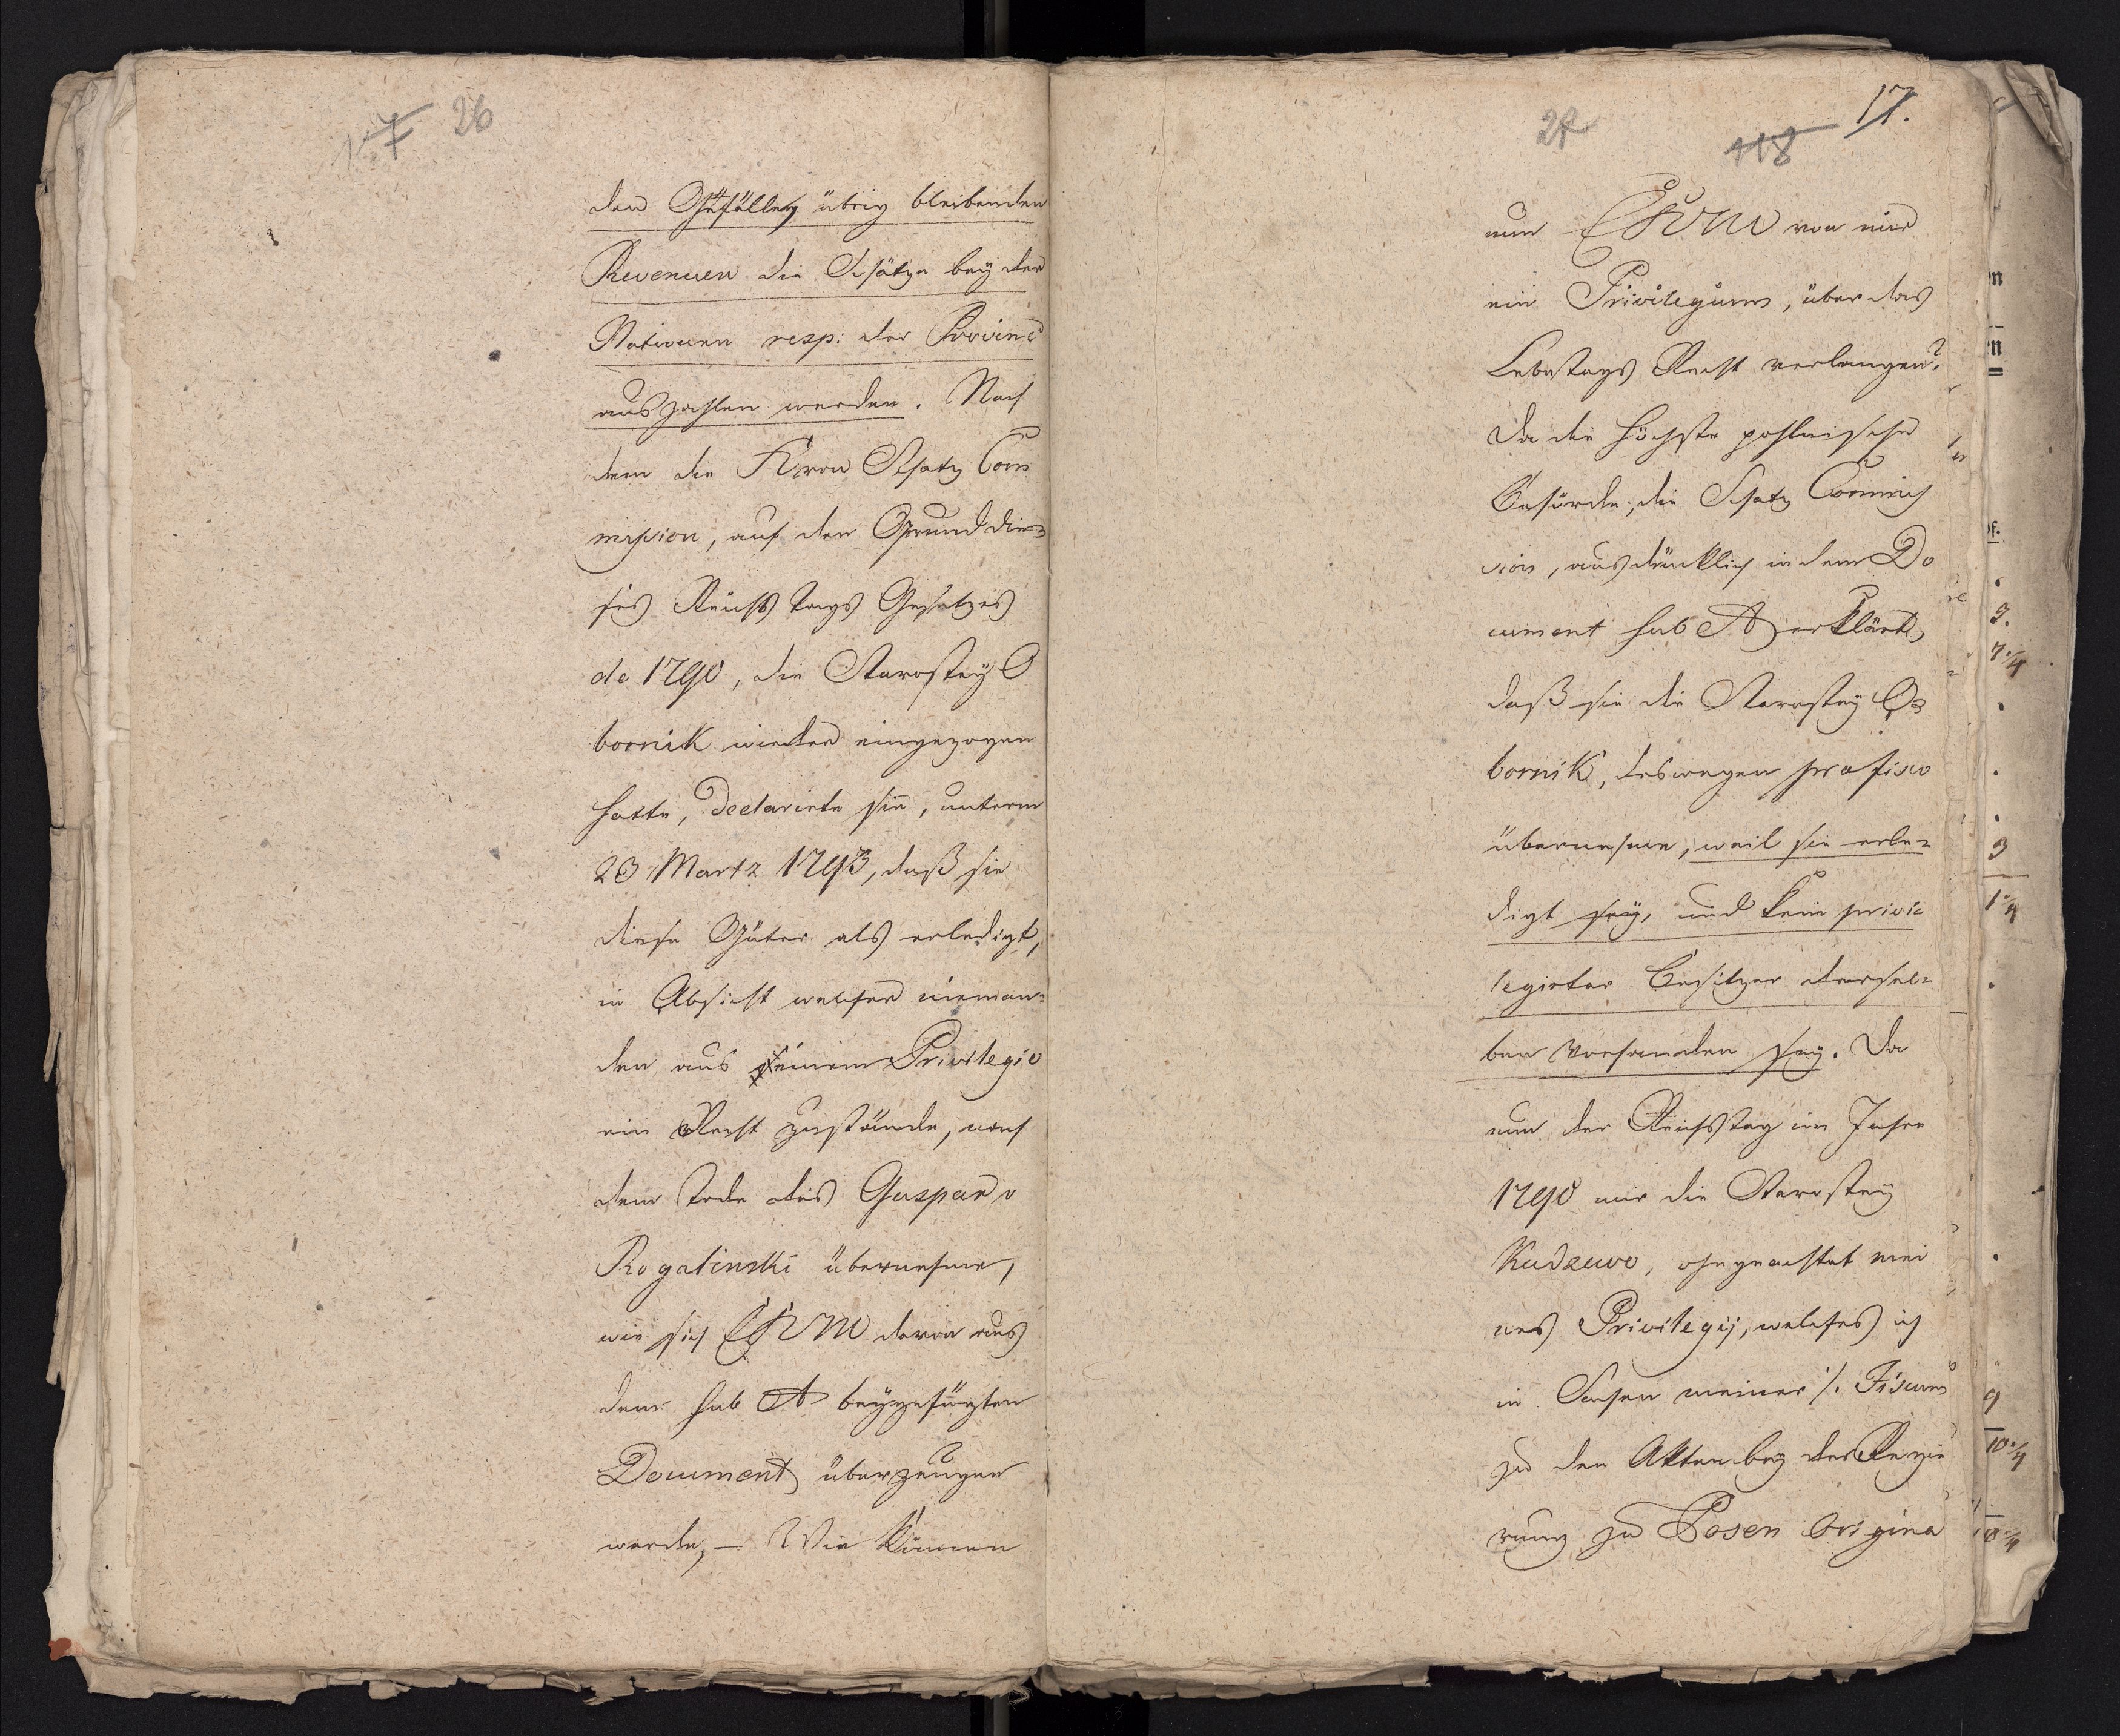 26
den Gefällen übrig bleibenden
Revenuen die Schätze bey der
Nationen resp: der Provinc
auszahlen werden. Nach
dem die Kron Schatz Com
mission, auf den Grund die=
ses Reichs Tags Gesetzes
de 1790, die Starostey O
bornik wieder eingezogen
hatte, declarirte sie, unterm
23 Martz 1793, daß sie
diese Güter als erledigt,
in Absicht welcher nieman=
den aus einem Privilegio
ein Recht zustände, nach
dem Tode des Gaspar v
Rogalinski übernehme,
wie sich EKM davon aus
dem sub A beygefügten
Document überzeugen
werde, — Wie können
27
118
17.
nun EKM von mir
ein Privilegium, über das
Lebetags Recht verlangen?
Da die höchste pohlnische
Behörde, die Schatz Commis
sion, ausdrücklich in dem Do
cument sub A erklärt,
daß sie die Starostey O=
bornik, deswegen pro fisco
übernehme, weil sie erle=
digt sey, und kein privi=
legirter Besitzer dersel=
ben vorhanden sey. Da
nun der Reichstag im Jahre
1790 mir die Starostey
ohngeachtet mei
nes Privilegij, welches ich
in Sachen meiner ./. Fiscum
zu den Akten bey der Regie
rung zu Posen origina